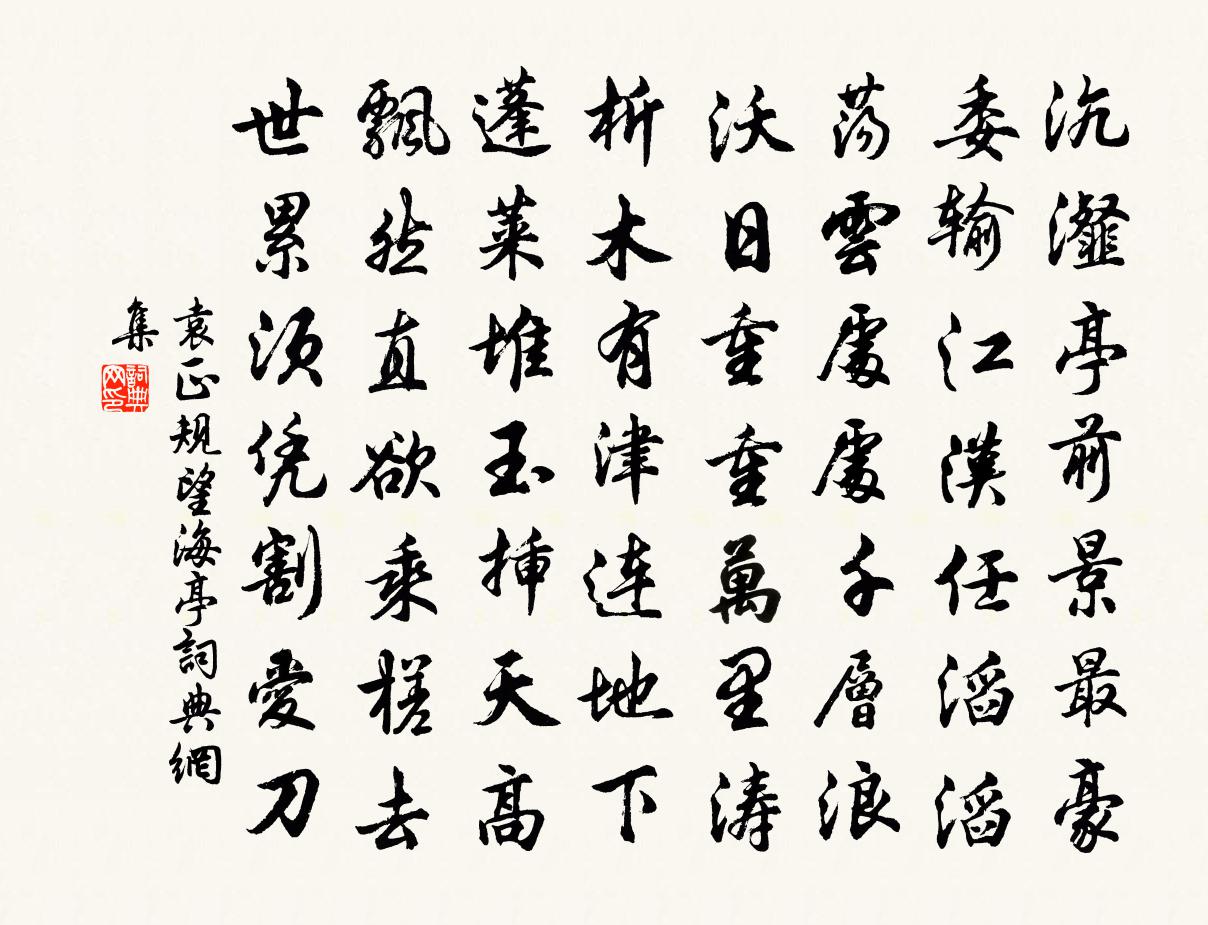 沆瀣亭前景最豪
委输江漢任滔滔
蕩雲處處千層浪
沃日重重萬里濤
析木有津連地下
蓬萊堆玉揷天高
飄然直欲乘槎去
世累須凭割愛刀
袁正規望海亭詞典網
集
詞典网印